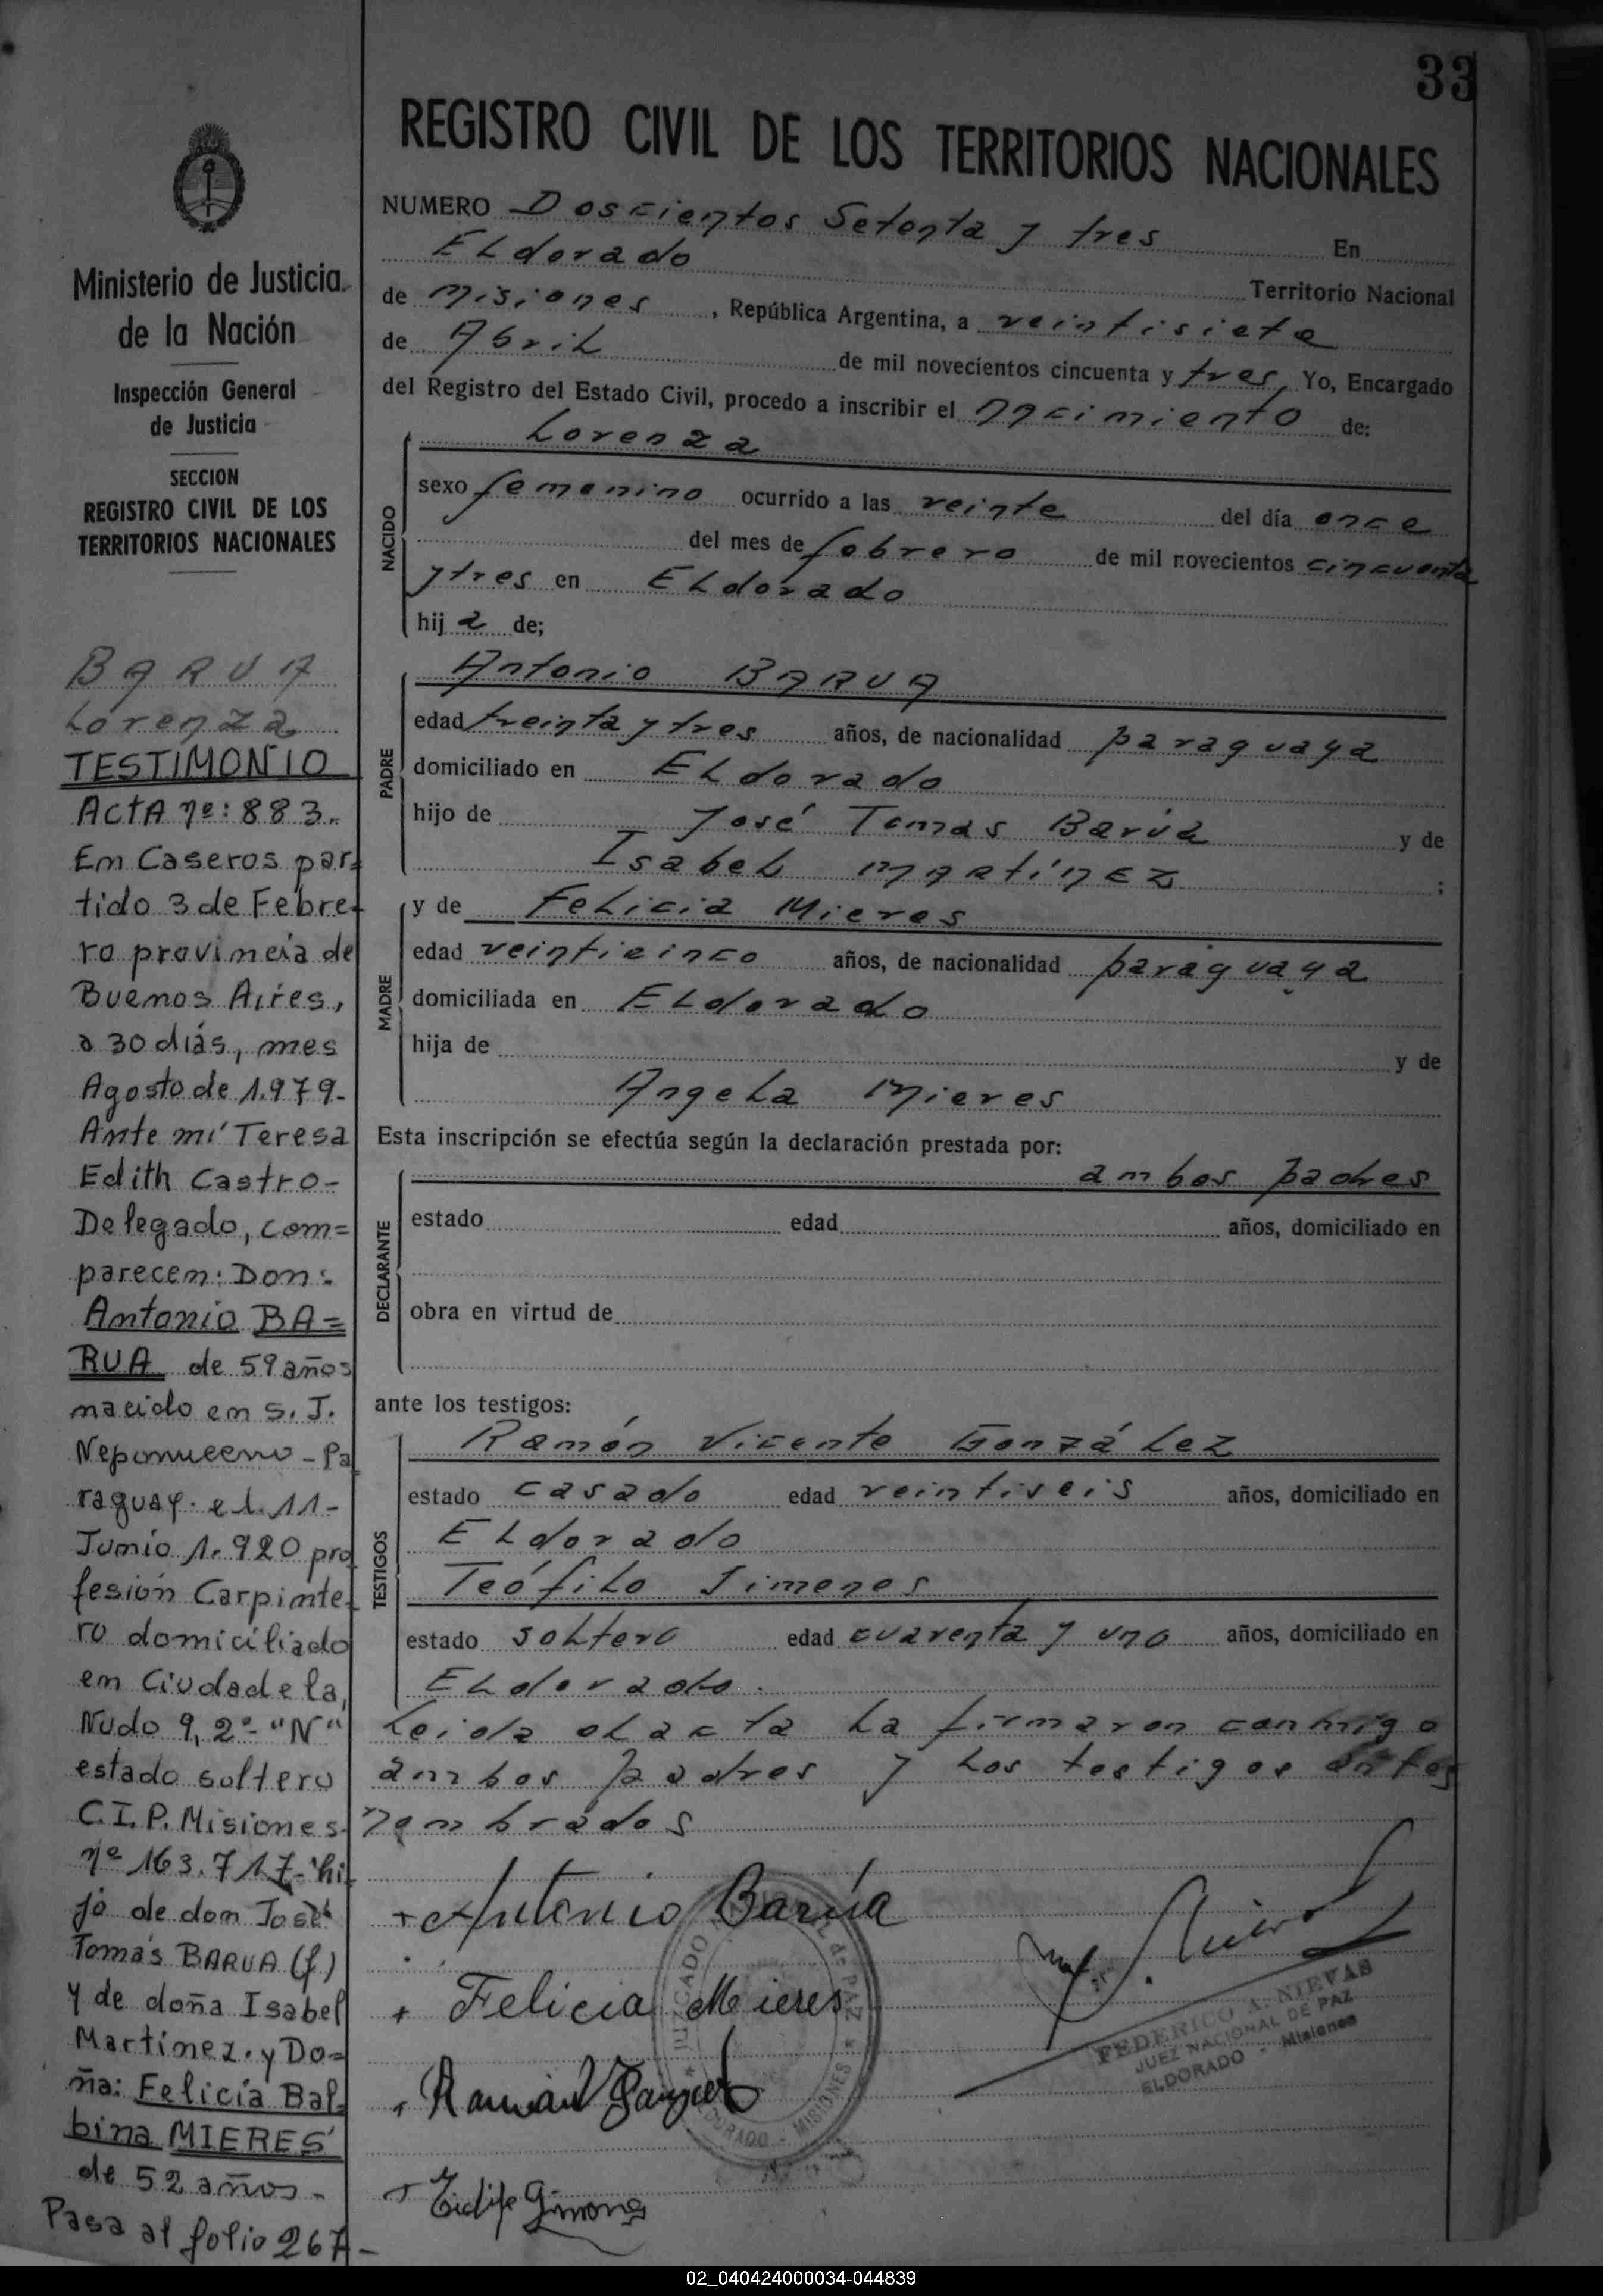 33
REGISTRO CIVIL DE LOS TERRITORIOS NACIONALES
NUMERO Doscientos Setenta y tres En
ELdorado Territorio Nacional
de misiones, República Argentina, a veintisiete
de Abril de mil novecientos cincuenta y tres, Yo, Encargado
del Registro del Estado Civil, procedo a inscribir el nacimiento de:
NACIDO
Lorenza
sexo femenino ocurrido a las veinte del día once
del mes de febrero de mil novecientos cincuenta
y tres en ELdorado
hija de;
PADRE
Antonio BARUA
edad treinta y tres años, de nacionalidad paraguaya
domiciliado en ELdorado
hijo de José Tomas Barúa y de
Isabel MARtíNEZ ;
MADRE
y de Felicia Mieres
edad veinticinco años, de nacionalidad paraguaya
domiciliada en ELdorado
hija de y de
Angela Mieres
Esta inscripción se efectúa según la declaración prestada por:
DECLARANTE
ambos padres
estado edad años, domiciliado en
obra en virtud de
ante los testigos:
TESTIGOS
Ramón Vicente González
estado casado edad veintiseis años, domiciliado en
ELdorado
Teófilo Jimenes
estado soltero edad cuarenta y uno años, domiciliado en
ELdorado.
Leida el acta la firmaron conmigo
ambos padres y los testigos antes
nombrados
+ Antonio Barúa
+ Felicia Mieres
+ Ramón V González
+
JUZGADO DE PAZ
ELDORADO - MISIONES
FEDERICO A. NIEVAS
JUEZ NACIONAL DE PAZ
ELDORADO - Misiones
Ministerio de Justicia
de la Nación
Inspección General
de Justicia
SECCION
REGISTRO CIVIL DE LOS
TERRITORIOS NACIONALES
BARUA
Lorenza
TESTIMONIO
ACTA nº: 883.
En Caseros par=
tido 3 de Febre-
ro provincia de
Buenos Aires,
a 30 días, mes
Agosto de 1.979-
Ante mí Teresa
Edith Castro-
Delegado, com=
parecen: Don:
Antonio BA=
RUA de 59 años
nacido en S. J.
Nepomuceno - Pa
raguay. el 11-
Junio 1.920 pro
fesión Carpinte-
ro domiciliado
en Ciudadela,
Nudo 9, 2º- "N"
estado soltero
C.I.P. Misiones.
nº 163.717- hi-
jo de don José
Tomás BARUA (f.)
y de doña Isabel
Martínez. y Do=
ña: Felicia Bal-
bina MIERES
de 52 años.
Pasa al folio 267-
02_040424000034-044839